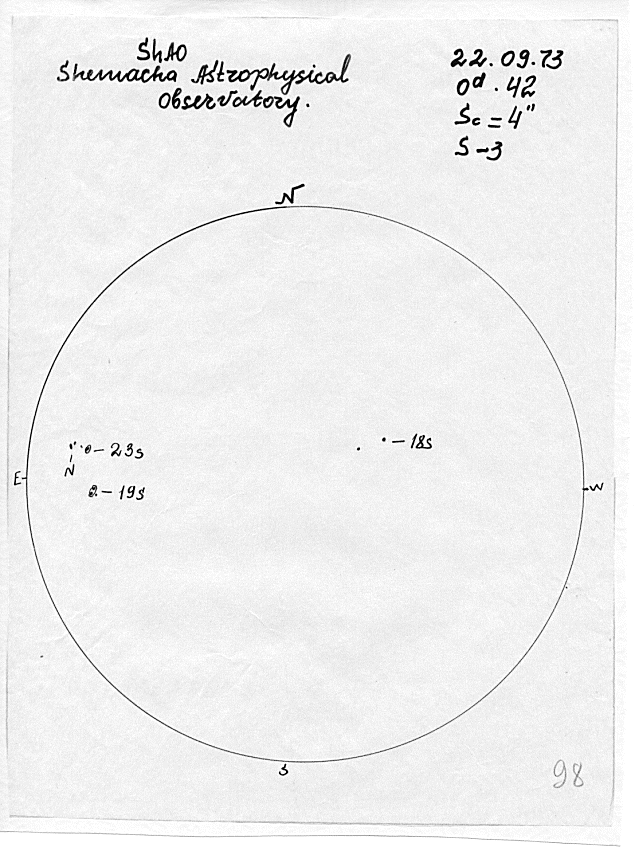 ShAO
Shemacha Astrophysical
Observatory.
22.09.73
0d.42
Sc = 4"
S-3
N
- 18s
- 23s
N
E
- 19s
W
S
98